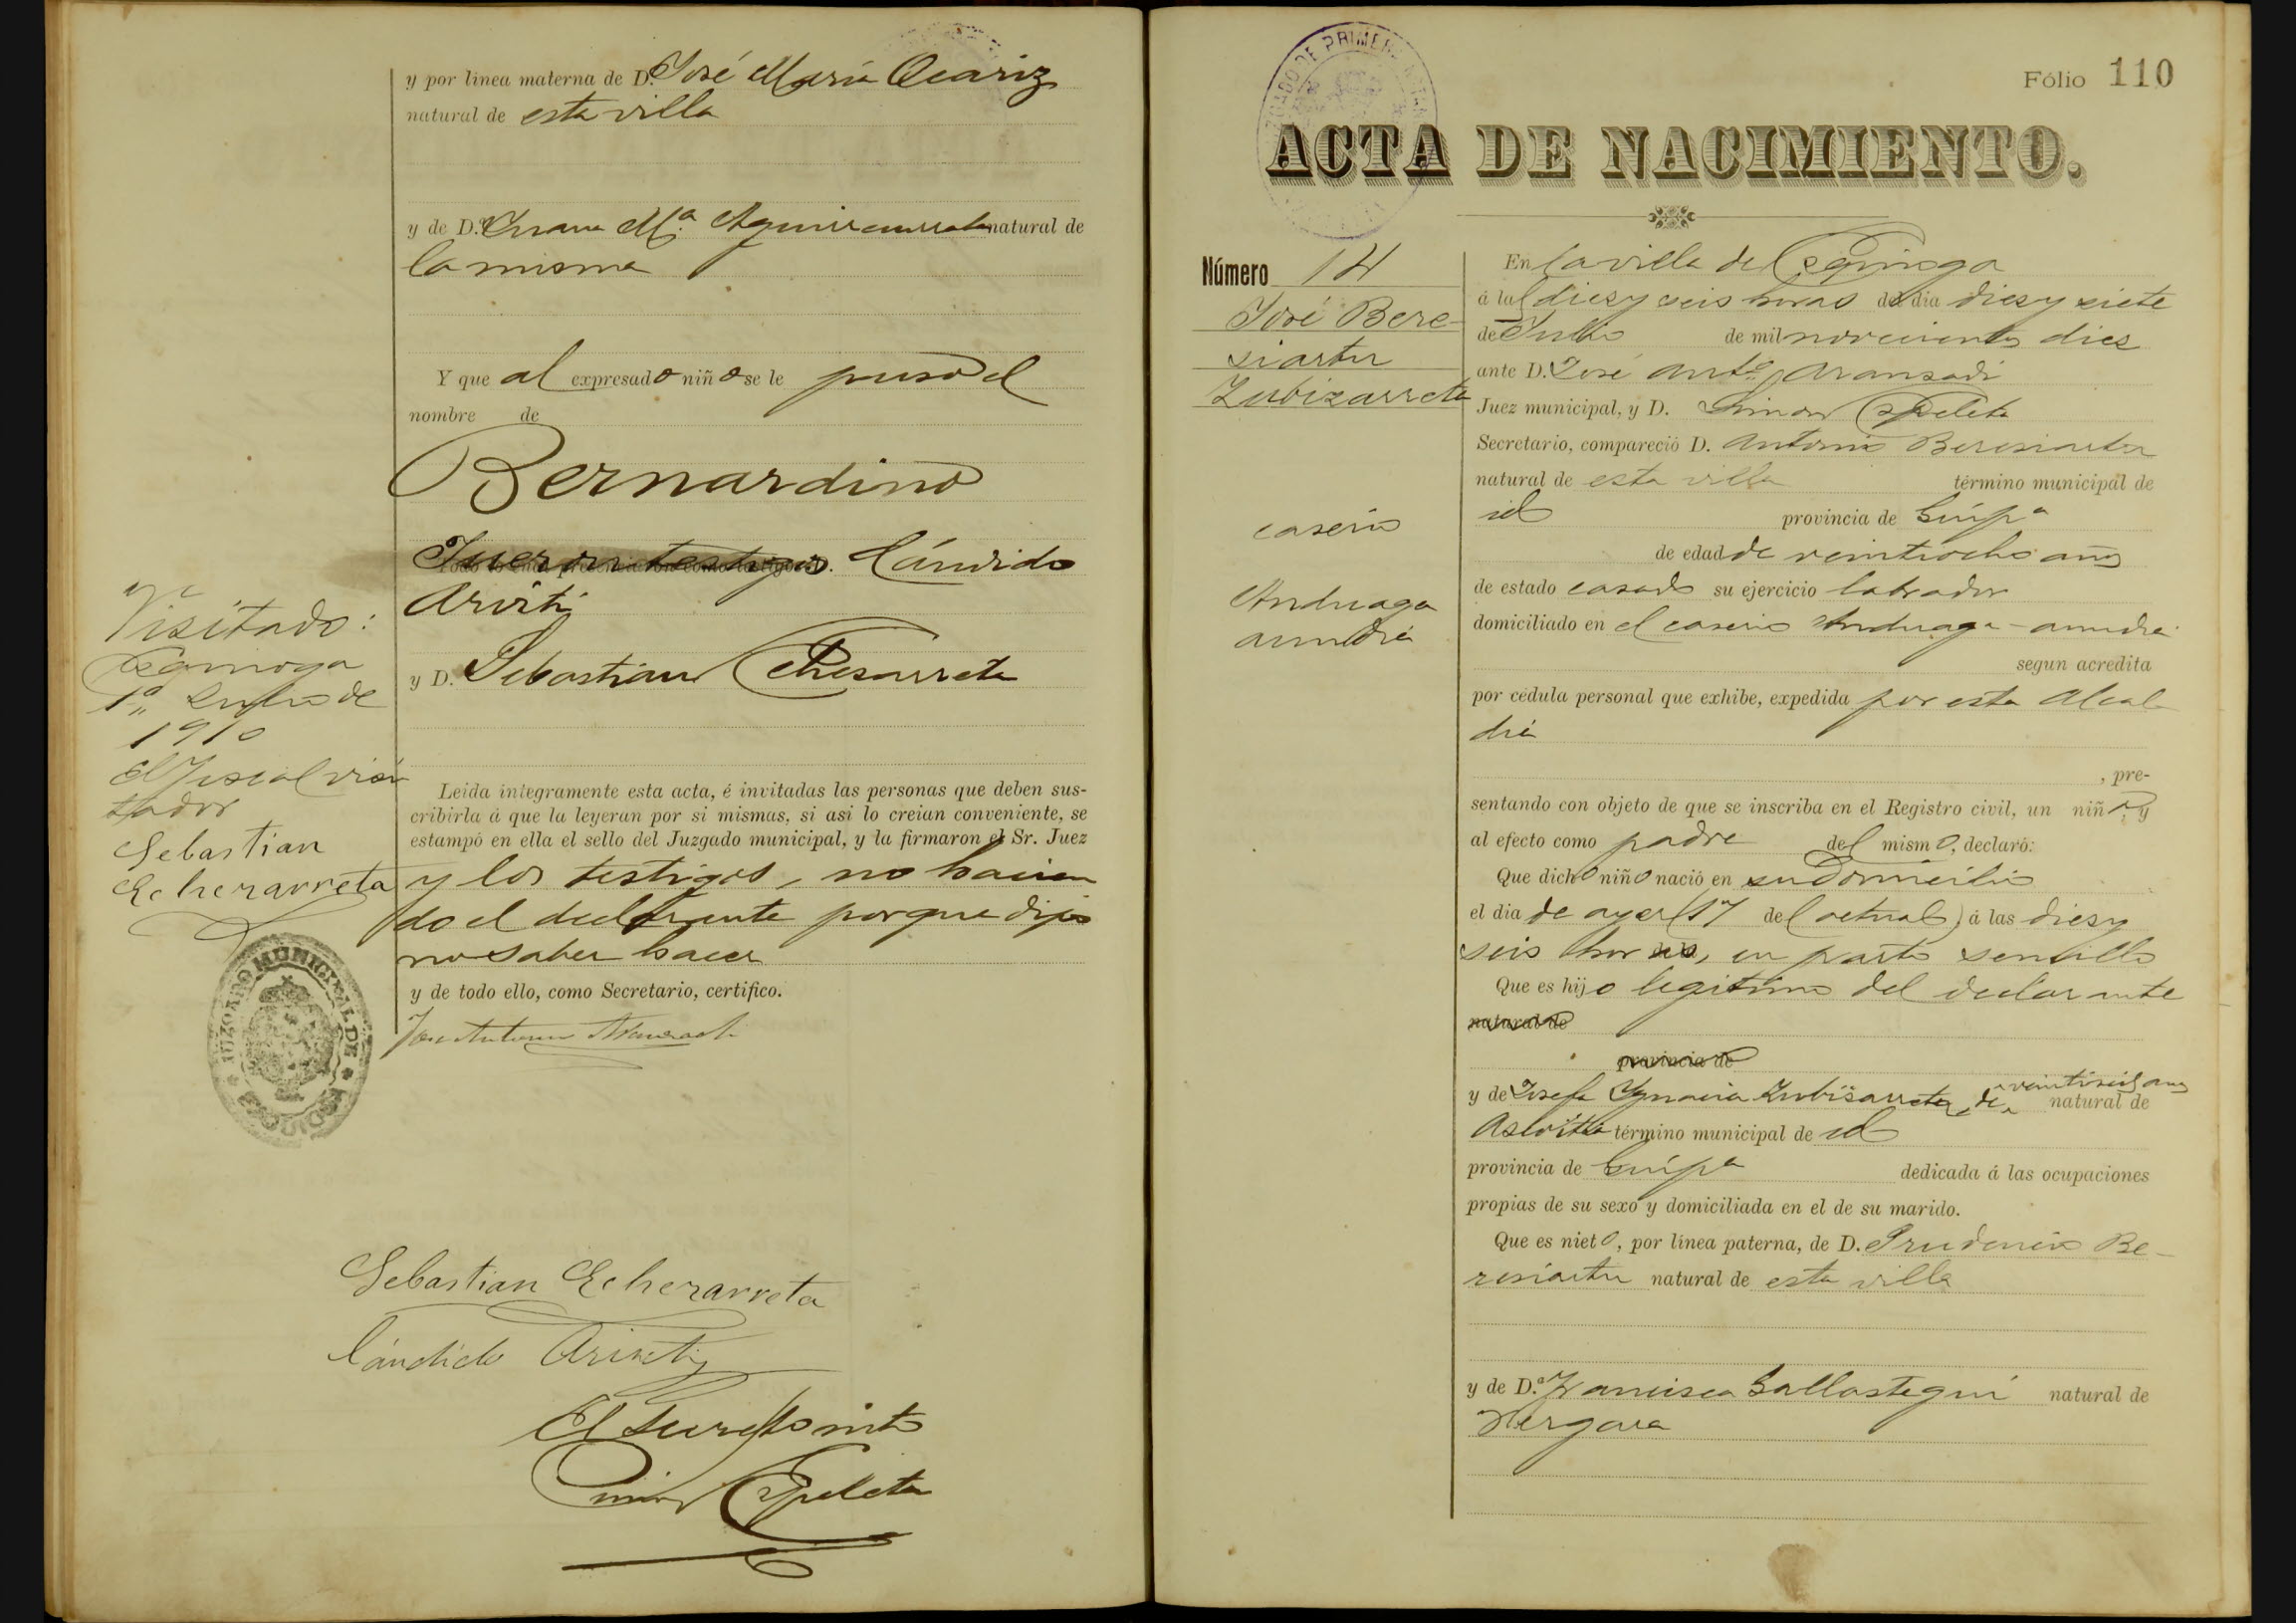 y por linea materna de D. José María Ocariz
natural de esta villa
y de D.ª Juana M.ª Aguirreurreta natural de
la misma
Y que al expresado niño se le puso el
nombre de
Bernardino
Fueron testigos Cándido
Aristi
y D. Sebastian Echezarreta
Visitado:
Ezquioga
1º Julio de
1910
El Fiscal visi
tador
Sebastian
Echezarreta
Leida integramente esta acta, é invitadas las personas que deben sus-
cribirla á que la leyeran por si mismas, si asi lo creian conveniente, se
estampó en ella el sello del Juzgado municipal, y la firmaron el Sr. Juez
y los testigos, no hacien
do el declarante porque dijo
no saber hacer
y de todo ello, como Secretario, certifico.
José Antonio Aranzadi
JUZGADO MUNICIPAL DE EZQUIOGA
Sebastian Echezarreta
Cándido Aristi
El Secret
Simon Ezpeleta
Fólio 110
JUZGADO DE PRIMERA
ACTA DE NACIMIENTO.
Número 14
José Bere-
siartu
Zubizarreta
caserio
Anduaga
aundia
En la villa de Ezquioga
á las diez y seis horas del dia diez y siete
de Julio de mil novecientos diez
ante D. José Antº Aranzadi
Juez municipal, y D. Simon Ezpeleta
Secretario, compareció D. Antonio Beresiartu
natural de esta villa término municipal de
id provincia de Guipª
de edad de veintiocho años
de estado casado su ejercicio labrador
domiciliado en el caserio Anduaga-aundia
segun acredita
por cédula personal que exhibe, expedida por esta Alcal
dia
, pre-
sentando con objeto de que se inscriba en el Registro civil, un niño, y
al efecto como padre del mismo, declaró:
Que dicho niño nació en su domicilio
el dia de ayer (17 del actual) á las diez y
seis horas, en parto sencillo
Que es hijo legitimo del declarante
natural de
provincia de
y de Josefa Ygnacia Zubizarreta, de veintiseis años natural de
Azcoitia término municipal de id
provincia de Guipª dedicada á las ocupaciones
propias de su sexo y domiciliada en el de su marido.
Que es nieto, por línea paterna, de D. Prudencio Be-
resiartu natural de esta villa
y de D.ª Francisca Gallastegui natural de
Vergara